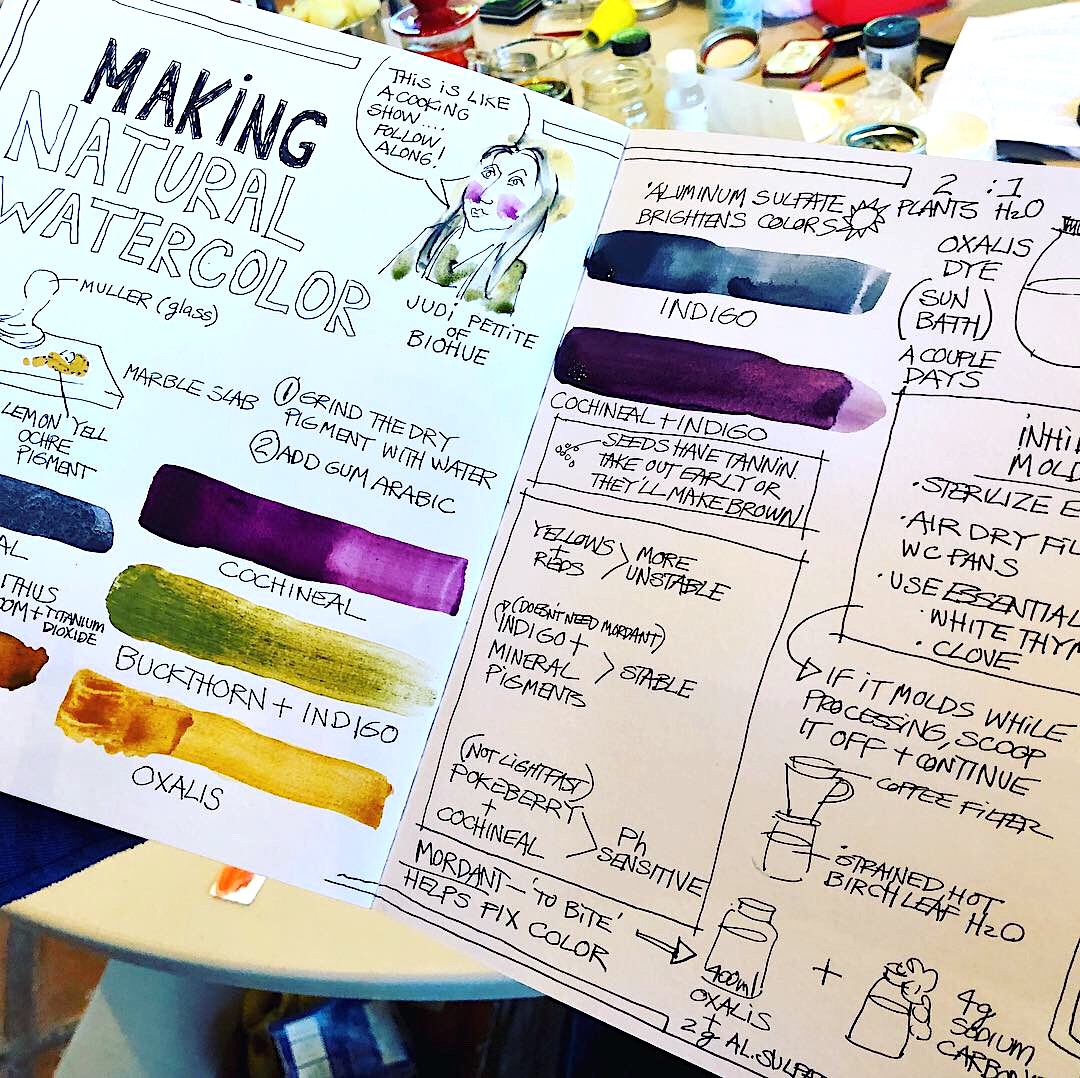 MAKING
NATURAL
WATERCOLOR
THIS IS LIKE
A COOKING
SHOW....
FOLLOW
ALONG!
JUDI PETTITE
OF
BIOHUE
MULLER (glass)
MARBLE SLAB
LEMON YELL
OCHRE
PIGMENT
① GRIND THE DRY
PIGMENT WITH WATER
② ADD GUM ARABIC
AL
COCHINEAL
TITANIUM
DIOXIDE
BUCKTHORN + INDIGO
OXALIS
'ALUMINUM SULFATE
BRIGHTENS COLORS
INDIGO
COCHINEAL + INDIGO
SEEDS HAVE TANNIN.
TAKE OUT EARLY OR
THEY'LL MAKE BROWN!
YELLOWS
+
REDS
MORE
UNSTABLE
(DOESN'T NEED MORDANT)
INDIGO +
MINERAL
PIGMENTS
STABLE
(NOT LIGHTFAST)
POKEBERRY
+
COCHINEAL
Ph
SENSITIVE
MORDANT - 'TO BITE'
HELPS FIX COLOR
2 : 1
PLANTS H2O
OXALIS
DYE
(SUN
BATH)
A COUPLE
DAYS
MOLD
• STERILIZE E
• AIR DRY FIL
WC PANS
• USE ESSENTIAL
• WHITE THYM
• CLOVE
IF IT MOLDS WHILE
PROCESSING, SCOOP
IT OFF + CONTINUE
COFFEE FILTER
• STRAINED HOT
BIRCH LEAF H2O
400ml
OXALIS
+
2g AL. SULFA
+
4g
SODIUM
CARBON